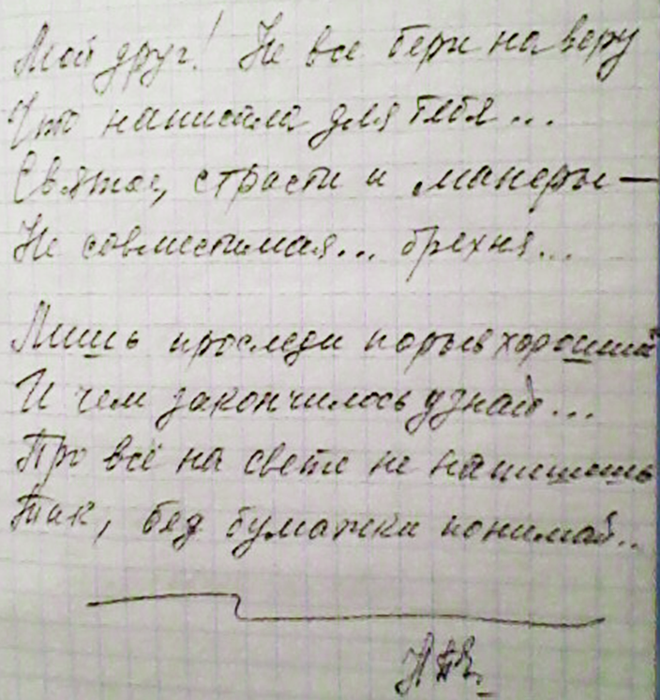 Мой друг! Не все бери на веру
Что написала для тебя...
Святое, страсти и манеры —
Не совместимая... брехня...
Лишь проследи порыв хороший
И чем закончилось узнай...
Про всё на свете не напишешь
Так, без бумажки понимай..